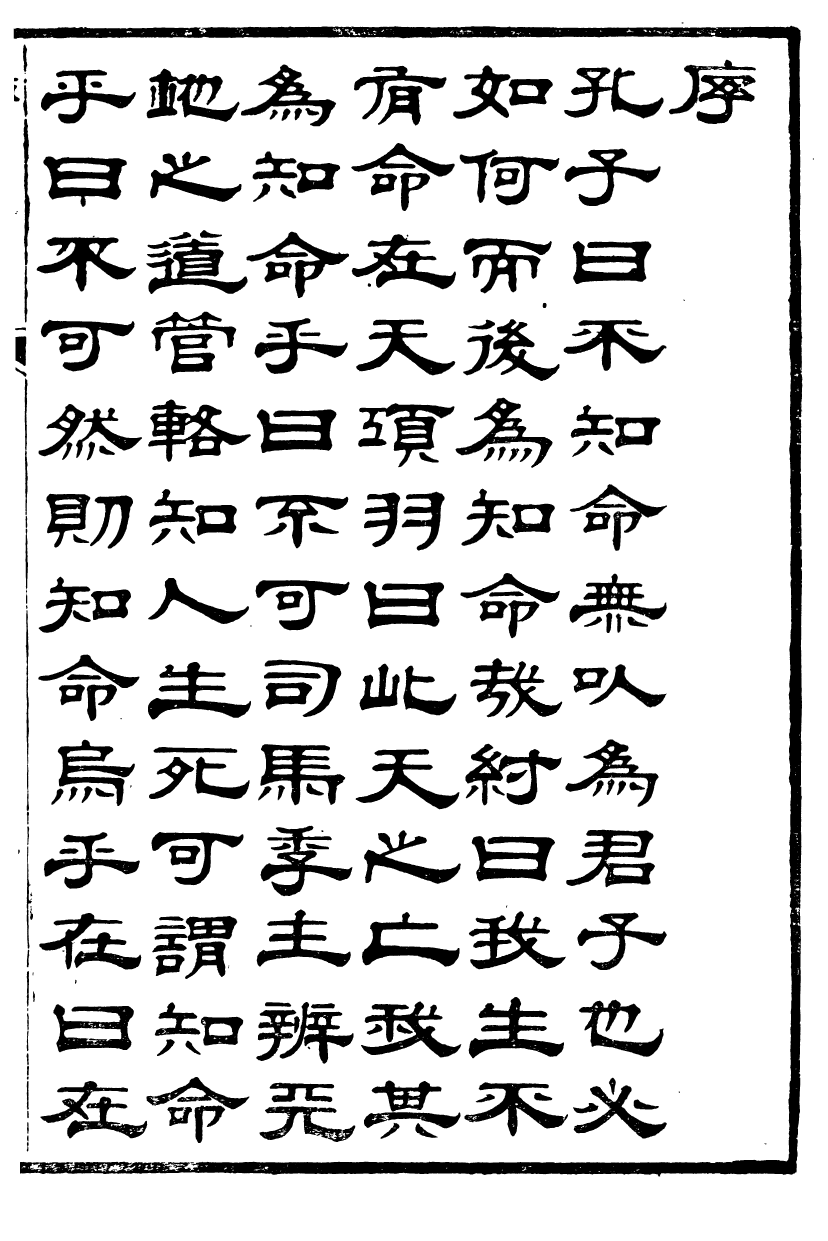 序
孔子曰不知命無以爲君子也必
如何而後爲知命哉紂曰我生不
有命在天項羽曰此天之亡我其
爲知命乎曰不可司馬季主辨天
地之道管輅知人生死可謂知命
乎曰不可然則知命烏乎在曰在